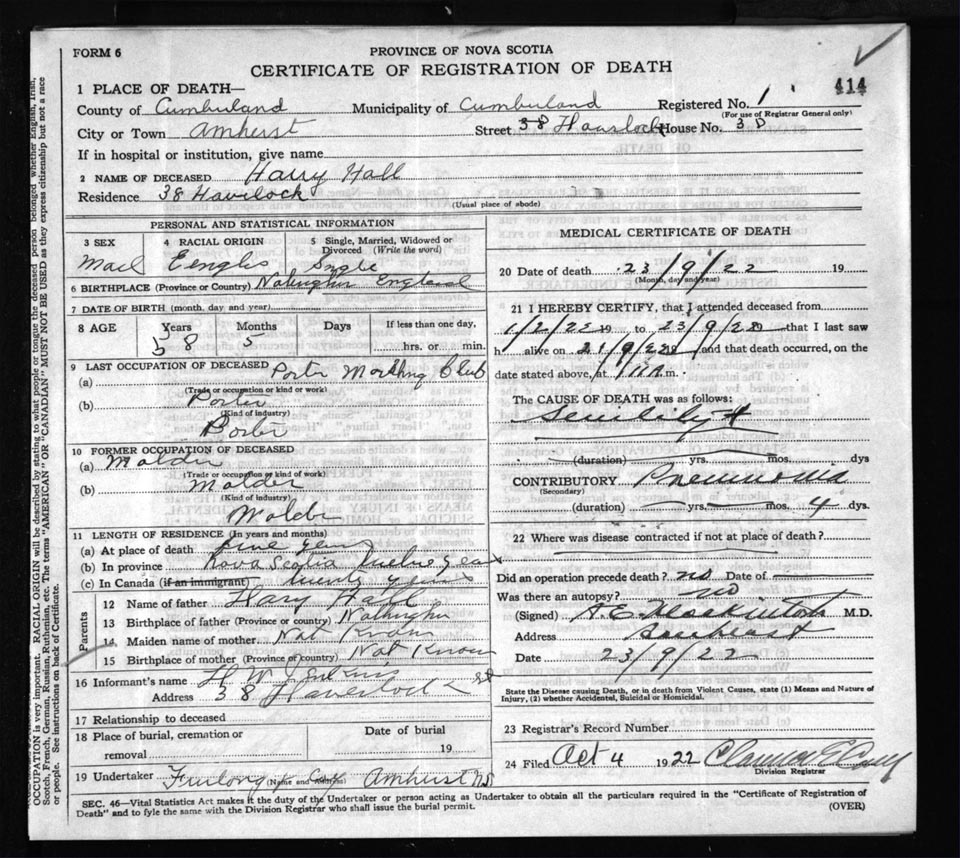 FORM 6
PROVINCE OF NOVA SCOTIA
CERTIFICATE OF REGISTRATION OF DEATH
414
1 PLACE OF DEATH—
County of Cumberland Municipality of Cumberland Registered No. 1
(For use of Registrar General only)
City or Town Amherst Street 38 House No. 3
If in hospital or institution, give name
2 NAME OF DECEASED Harry Hall
Residence 38 Havilock
(Usual place of abode)
PERSONAL AND STATISTICAL INFORMATION
3 SEX 4 RACIAL ORIGIN 5 Single, Married, Widowed or Divorced (Write the word)
Mael Eenglis Sngle
6 BIRTHPLACE (Province or Country) England
7 DATE OF BIRTH (month, day and year)
8 AGE Years Months Days If less than one day,
58 5 hrs. or min.
9 LAST OCCUPATION OF DECEASED Porter Club
(a)
(Trade or occupation or kind or work)
(b) Porter
(Kind of industry)
Porter
10 FORMER OCCUPATION OF DECEASED
(a) Molder
(Trade or occupation or kind of work)
(b) Molder
(Kind of industry)
Molder
11 LENGTH OF RESIDENCE (In years and months)
(a) At place of death five years
(b) In province Nova Scotia twelve years
(c) In Canada (if an immigrant) twenty years
Parents
12 Name of father Hary Hall
13 Birthplace of father (Province or country)
14 Maiden name of mother Not Know
15 Birthplace of mother (Province or country) Not Know
16 Informant's name H W
Address 38 Havelock St
17 Relationship to deceased
18 Place of burial, cremation or removal Date of burial 19
19 Undertaker Furlong Amherst NS
(Name and Address)
MEDICAL CERTIFICATE OF DEATH
20 Date of death 23/9/22 19
(Month, day and year)
21 I HEREBY CERTIFY, that I attended deceased from
1/2/22 19 to 23/9/22 19 that I last saw
h alive on 21/9/22 and that death occurred, on the
date stated above, at m.
The CAUSE OF DEATH was as follows:
(duration) yrs. mos. dys.
CONTRIBUTORY Pneumonia
(Secondary)
(duration) yrs. mos. 4 dys.
22 Where was disease contracted if not at place of death?
Did an operation precede death? no Date of
Was there an autopsy? no
(Signed) A.E. M.D.
Address Amherst
Date 23/9/22
State the Disease causing Death, or in death from Violent Causes, state (1) Means and Nature of
Injury, (2) whether Accidental, Suicidal or Homicidal.
23 Registrar's Record Number
24 Filed Oct 4 1922 Clarence E
Division Registrar
SEC. 46—Vital Statistics Act makes it the duty of the Undertaker or person acting as Undertaker to obtain all the particulars required in the "Certificate of Registration of
Death" and to fyle the same with the Division Registrar who shall issue the burial permit.
(OVER)
OCCUPATION is very important. RACIAL ORIGIN will be described by stating to what people or tongue the deceased person belonged whether English, Irish,
Scotch, French, German, Russian, Ruthenian, etc. The terms "AMERICAN" OR "CANADIAN" MUST NOT BE USED as they express citizenship but not a race
or people. See instructions on back of Certificate.